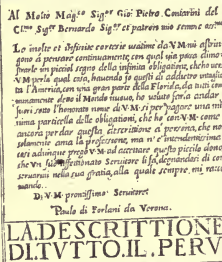 Al Molto Mag.co Sig.or Gio: Pietro Contarini del
Cl.mo Sig.or Bernardo Sig.or et patron mio sempre
Le molte et infinite cortesie usatime da V.M. mi astrin
gono à pensare continuamente, con qual via possa dimo
strarle un picciol segno della infinita obligatione, che ho con
V.M. per la qual cosa, havendo io questi dì adietro intaglia
ta l'America, con una gran parte della Florida, da tutti com
munemente detto il Mondo nuovo, ho voluto farla andar
fuori sotto l'honorato nome di V.M. si per pagare una mi
nima particella delle obligationi, che ho con V.M. come
ancora per dar questa descrittione à persona, che no
solamente ama la professione, ma n'è intendentissima
così adunque prego V.M. ad accettare questo piccolo dono
che un suo affetionato Servitore li fa, degnandosi di con
servarmi nella sua gratia, alla quale sempre, mi racco
mando.
Di V.M. prontissimo Servitore
Paulo di Forlani da Verona.
LA DESCRITTIONE
DI TVTTO IL PERV